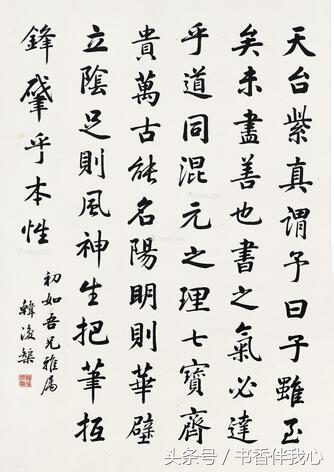 天台紫真謂予曰子雖至
矣未盡善也書之氣必達
乎道同混元之理七寶齊
貴萬古能名陽明則華壁
立陰足則風神生把筆抵
鋒肇乎本性
初如吾兄雅属
韓復榘
头条号 / 书香伴我心